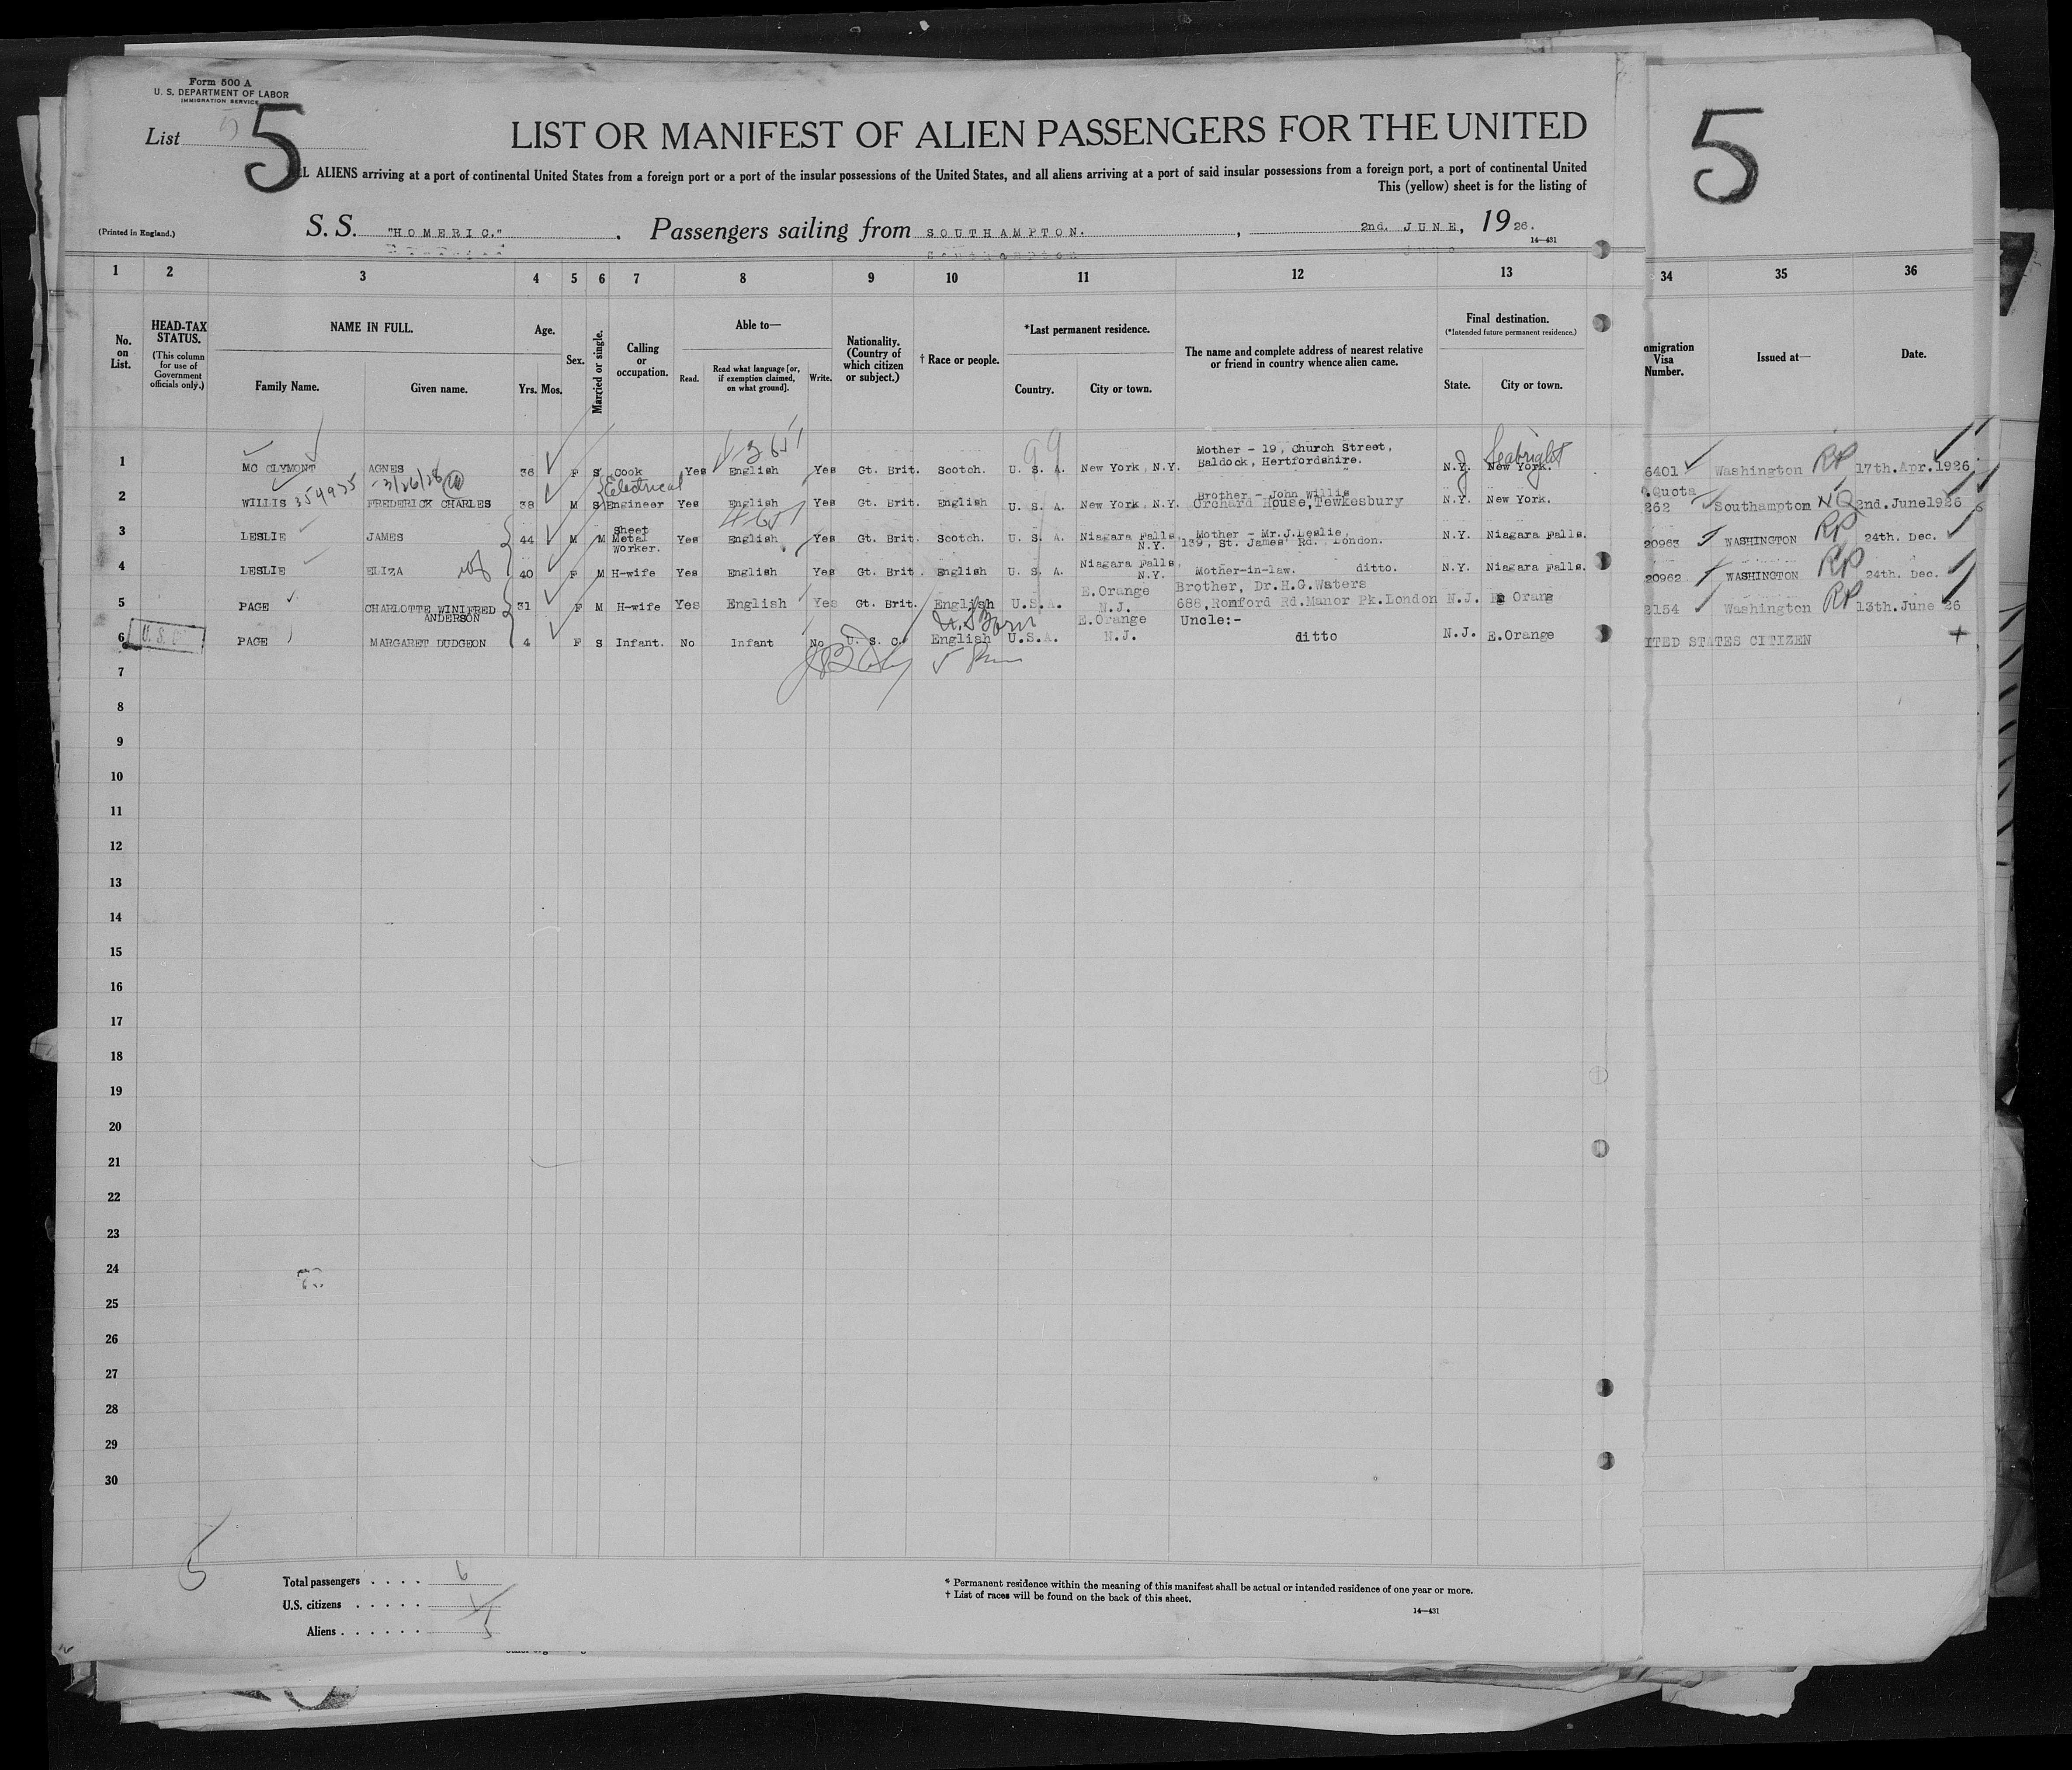 Form 500 A
U. S. DEPARTMENT OF LABOR
IMMIGRATION SERVICE
List 5
5
LIST OR MANIFEST OF ALIEN PASSENGERS FOR THE UNITED
ALIENS arriving at a port of continental United States from a foreign port or a port of the insular possessions of the United States, and all aliens arriving at a port of said insular possessions from a foreign port, a port of continental United
This (yellow) sheet is for the listing of
(Printed in England.) S. S. "HOMERIC." Passengers sailing from SOUTHAMPTON. , 2nd. JUNE, 1926.
14—431
1 2 3 4 5 6 7 8 9 10 11 12 13 34 35 36
No. on List. HEAD-TAX STATUS. (This column for use of Government officials only.) NAME IN FULL. Family Name. Given name. Age. Yrs. Mos. Sex. Married or single. Calling or occupation. Able to— Read. Read what language [or, if exemption claimed, on what ground]. Write. Nationality. (Country of which citizen or subject.) † Race or people. *Last permanent residence. Country. City or town. The name and complete address of nearest relative or friend in country whence alien came. Final destination. (*Intended future permanent residence.) State. City or town. Visa Number. Issued at— Date.
1 MC CLYMONT AGNES 36 F S Cook Yes English Yes Gt. Brit. Scotch. U. S. A. New York, N.Y. Mother - 19, Church Street, Baldock, Hertfordshire. N.Y. J New York. Seabright 6401 Washington RP 17th.Apr.1926
4-3651
99
2 WILLIS 354925 3/26/28 FREDERICK CHARLES 38 M S Electrical Engineer Yes English Yes Gt. Brit. English U. S. A. New York, N.Y. Brother - John Willis Orchard House, Tewkesbury N.Y. New York. Quota 262 Southampton NQ 2nd.June1926
3 LESLIE JAMES 44 M M Sheet Metal Worker. Yes English Yes Gt. Brit. Scotch. U. S. A. Niagara Falls, N.Y. Mother - Mr.J.Leslie, 139, St. James Rd. London. N.Y. Niagara Falls. 20963 WASHINGTON RP 24th. Dec.
4 LESLIE ELIZA 40 F M H-wife Yes English Yes Gt. Brit. English U. S. A. Niagara Falls, N.Y. Mother-in-law. ditto. N.Y. Niagara Falls. 20962 WASHINGTON RP 24th. Dec.
5 PAGE CHARLOTTE WINIFRED ANDERSON 31 F M H-wife Yes English Yes Gt. Brit. English U.S.A. E.Orange N.J. Brother, Dr.H.G.Waters 688, Romford Rd.Manor Pk.London N.J. E Orang 2154 Washington RP 13th.June 26
U.S. Born
6 U.S.C. PAGE MARGARET DUDGEON 4 F S Infant. No Infant No U. S. C. English U.S.A. E.Orange N.J. Uncle:- ditto N.J. E.Orange ITED STATES CITIZEN
7
8
9
10
11
12
13
14
15
16
17
18
19
20
21
22
23
24
25
26
27
28
29
30
5
Total passengers . . . . 6
U.S. citizens . . . . . 1
Aliens . . . . . . 5
* Permanent residence within the meaning of this manifest shall be actual or intended residence of one year or more.
† List of races will be found on the back of this sheet.
14—431